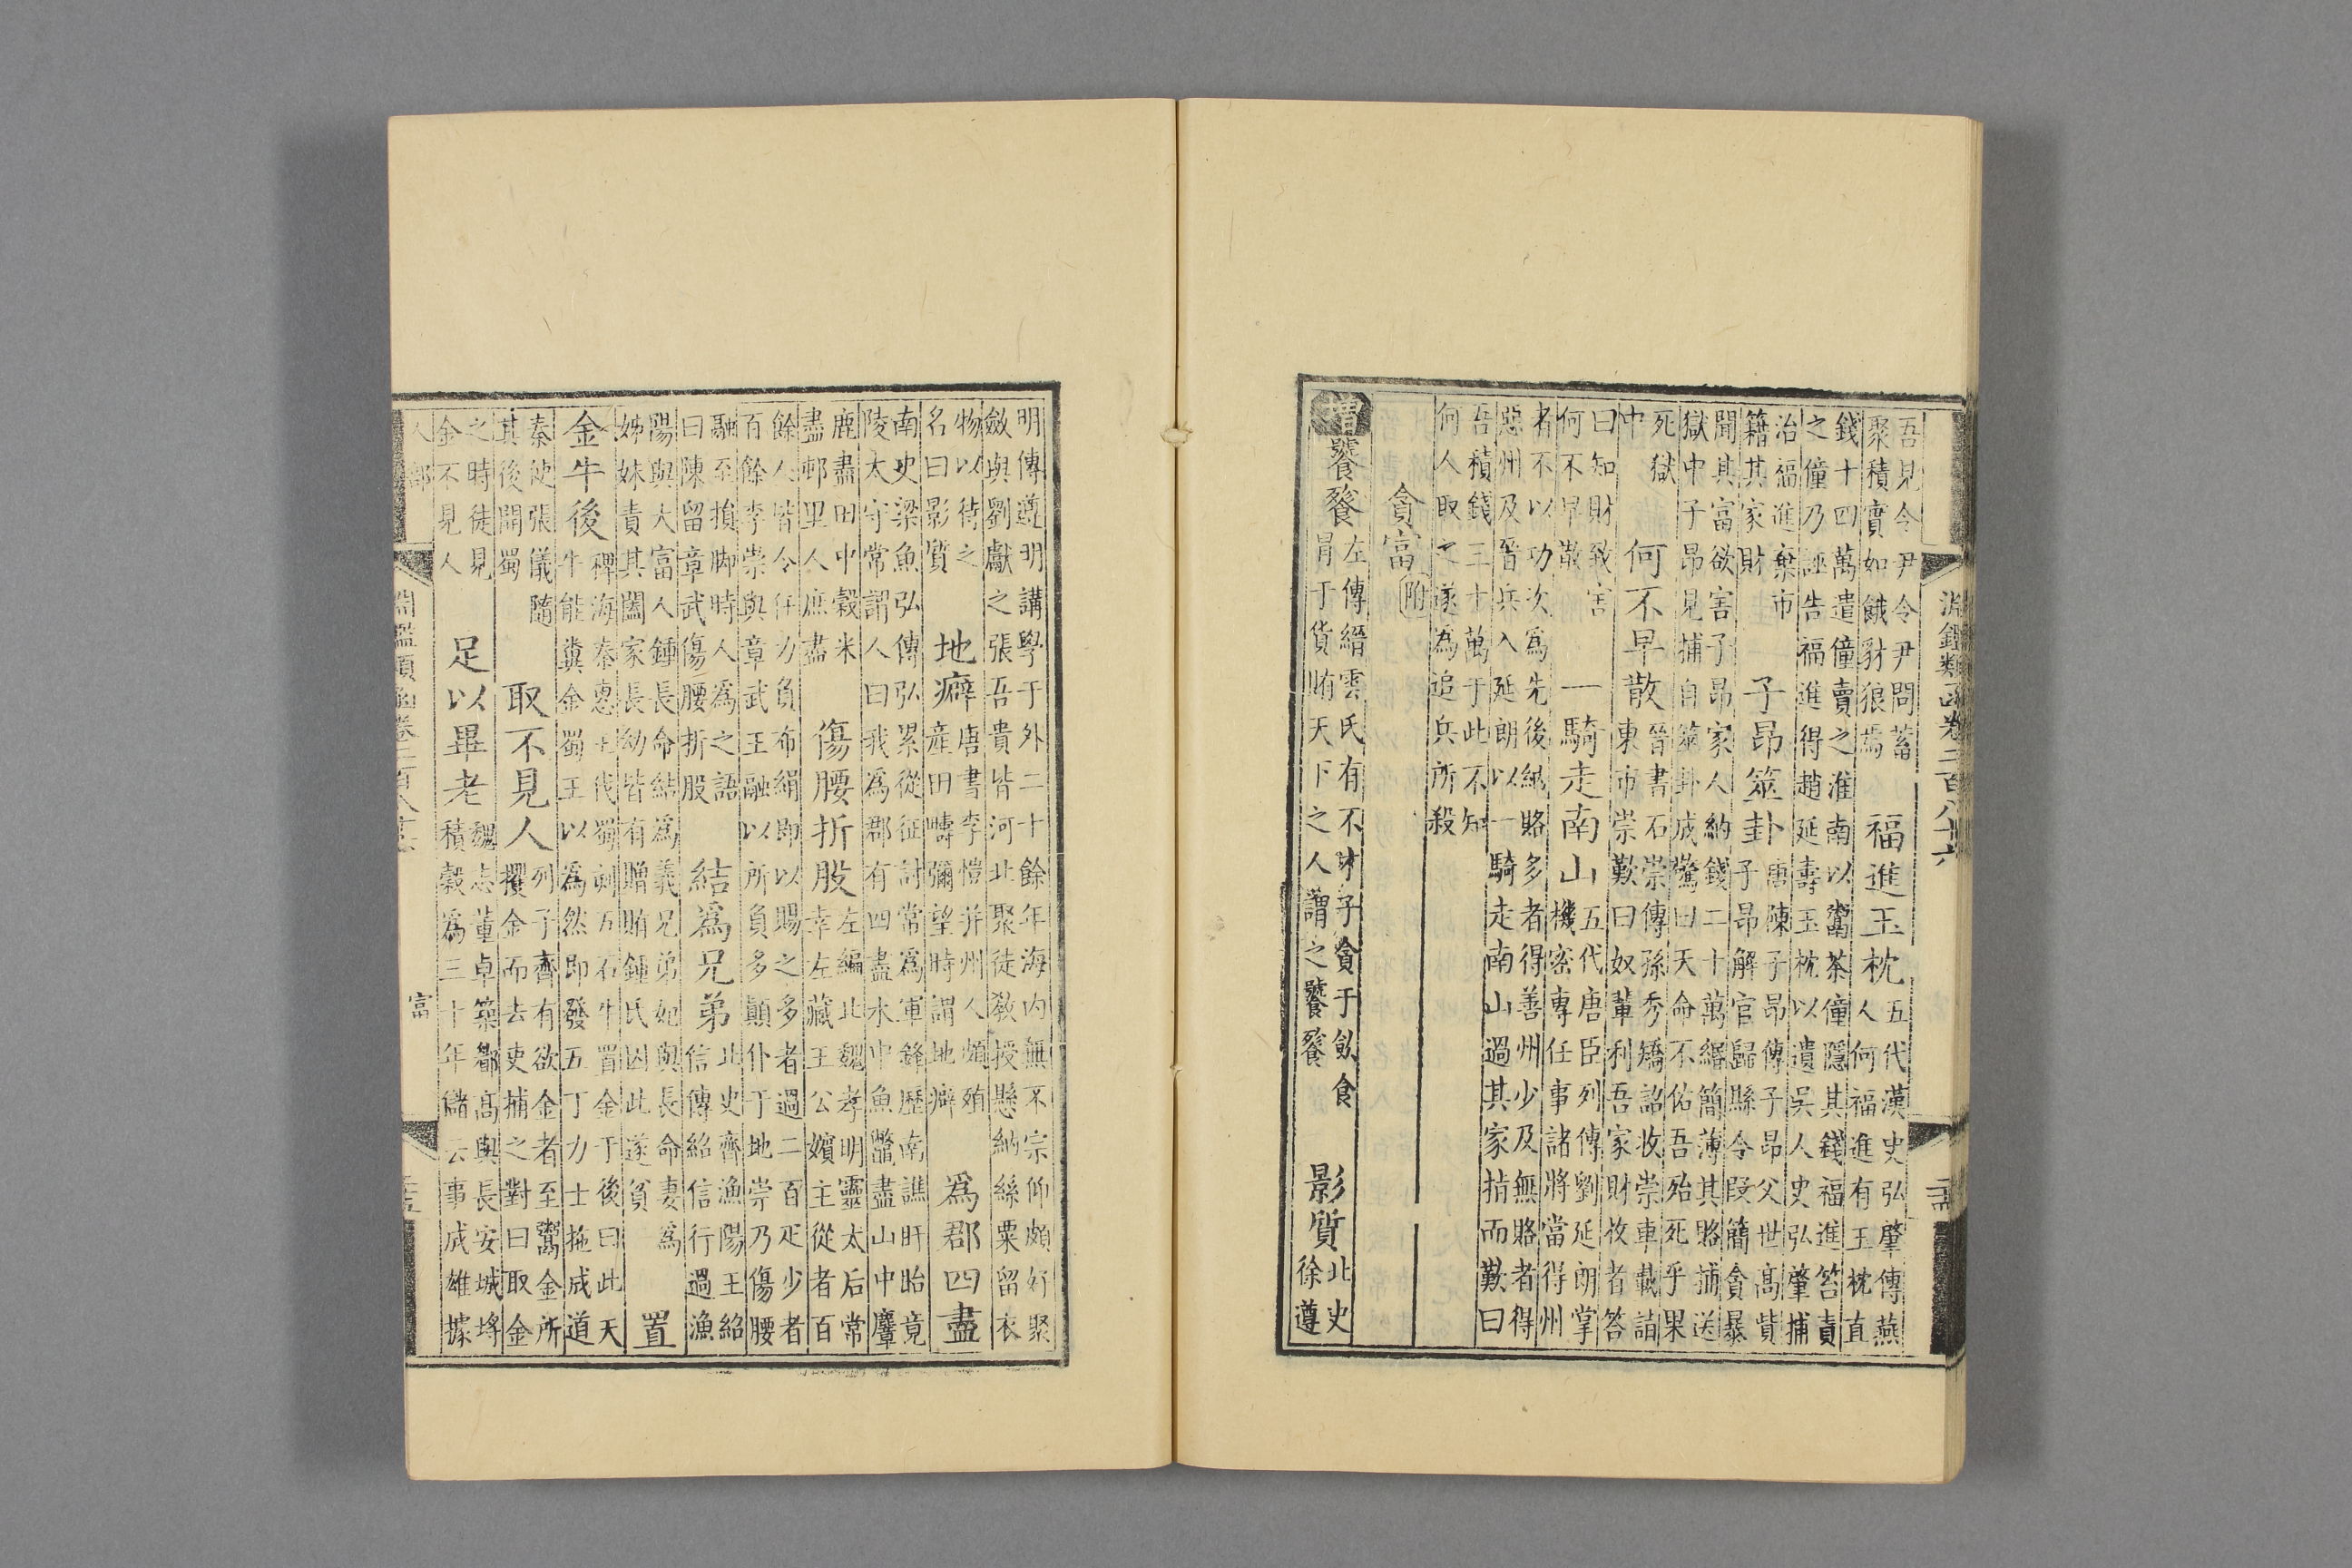 淵鑑類函卷三百八十六
吾見令尹令尹問蓄
聚積實如餓豺狼焉
福進玉枕
五代漢史弘肇傳燕
人何福進有玉枕直
錢十四萬遣僮賣之淮南以鬻茶僮隱其錢福進笞責
之僮乃誣告福進得趙延壽玉枕以遺吳人史弘肇捕
治福進棄市
籍其家財
子昂筮卦
唐陳子昂傳子昂父世高貲
子昂解官歸縣令段簡貪暴
聞其富欲害子昂家人納錢二十萬緡簡薄其賂捕送
獄中子昂見捕自筮卦成驚曰天命不佑吾殆死乎果
死獄
中
何不早散
晉書石崇傳孫秀矯詔收崇車載詣
東市崇歎曰奴輩利吾家財收者答
曰知財致害
何不早散
一騎走南山
五代唐臣列傳劉延朗掌
機密專任事諸將當得州
者不以功次為先後納賂多者得善州少及無賂者得
惡州及晉兵入延朗以一騎走南山過其家指而歎曰
吾積錢三十萬于此不知
何人取之遂為追兵所殺
貪富附
增饕餮
左傳縉雲氏有不才子貪于飲食
冒于貨賄天下之人謂之饕餮
影質
北史
徐遵
明傳遵明講學于外二十餘年海內無不宗仰頗好聚
斂與劉獻之張吾貴皆河北聚徒教授懸納絲粟留衣
物以待之
名曰影質
地癖
唐書李憕并州人頗殖
產田疇彌望時謂地癖
為郡四盡
南史梁魚弘傳弘累從征討常為軍鋒歷南譙盱眙竟
陵太守常謂人曰我為郡有四盡水中魚鼈盡山中麞
鹿盡田中穀米
盡邨里人庶盡
傷腰折股
左編北魏孝明靈太后常
幸左藏王公嬪主從者百
餘人皆令任力負布絹即以賜之多者過二百疋少者
百餘李崇與章武王融以所負多顛仆于地崇乃傷腰
融至損脚時人為之語
曰陳留章武傷腰折股
結為兄弟
北史齊漁陽王紹
信傳紹信行過漁
陽與大富人鍾長命結為義兄弟妃與長命妻為
姊妹責其闔家長幼皆有贈賄鍾氏因此遂貧
置
金牛後
稗海秦惠王伐蜀刻五石牛置金于後曰此天
牛能糞金蜀王以為然即發五丁力士拖成道
秦使張儀隨
其後開蜀
取不見人
列子齊有欲金者至鬻金所
攫金而去吏捕之對曰取金
之時徒見
金不見人
足以畢老
魏志董卓築郿塢高與長安城埒
積穀為三十年儲云事成雄據
人部
淵鑑類函卷三百八十六
富